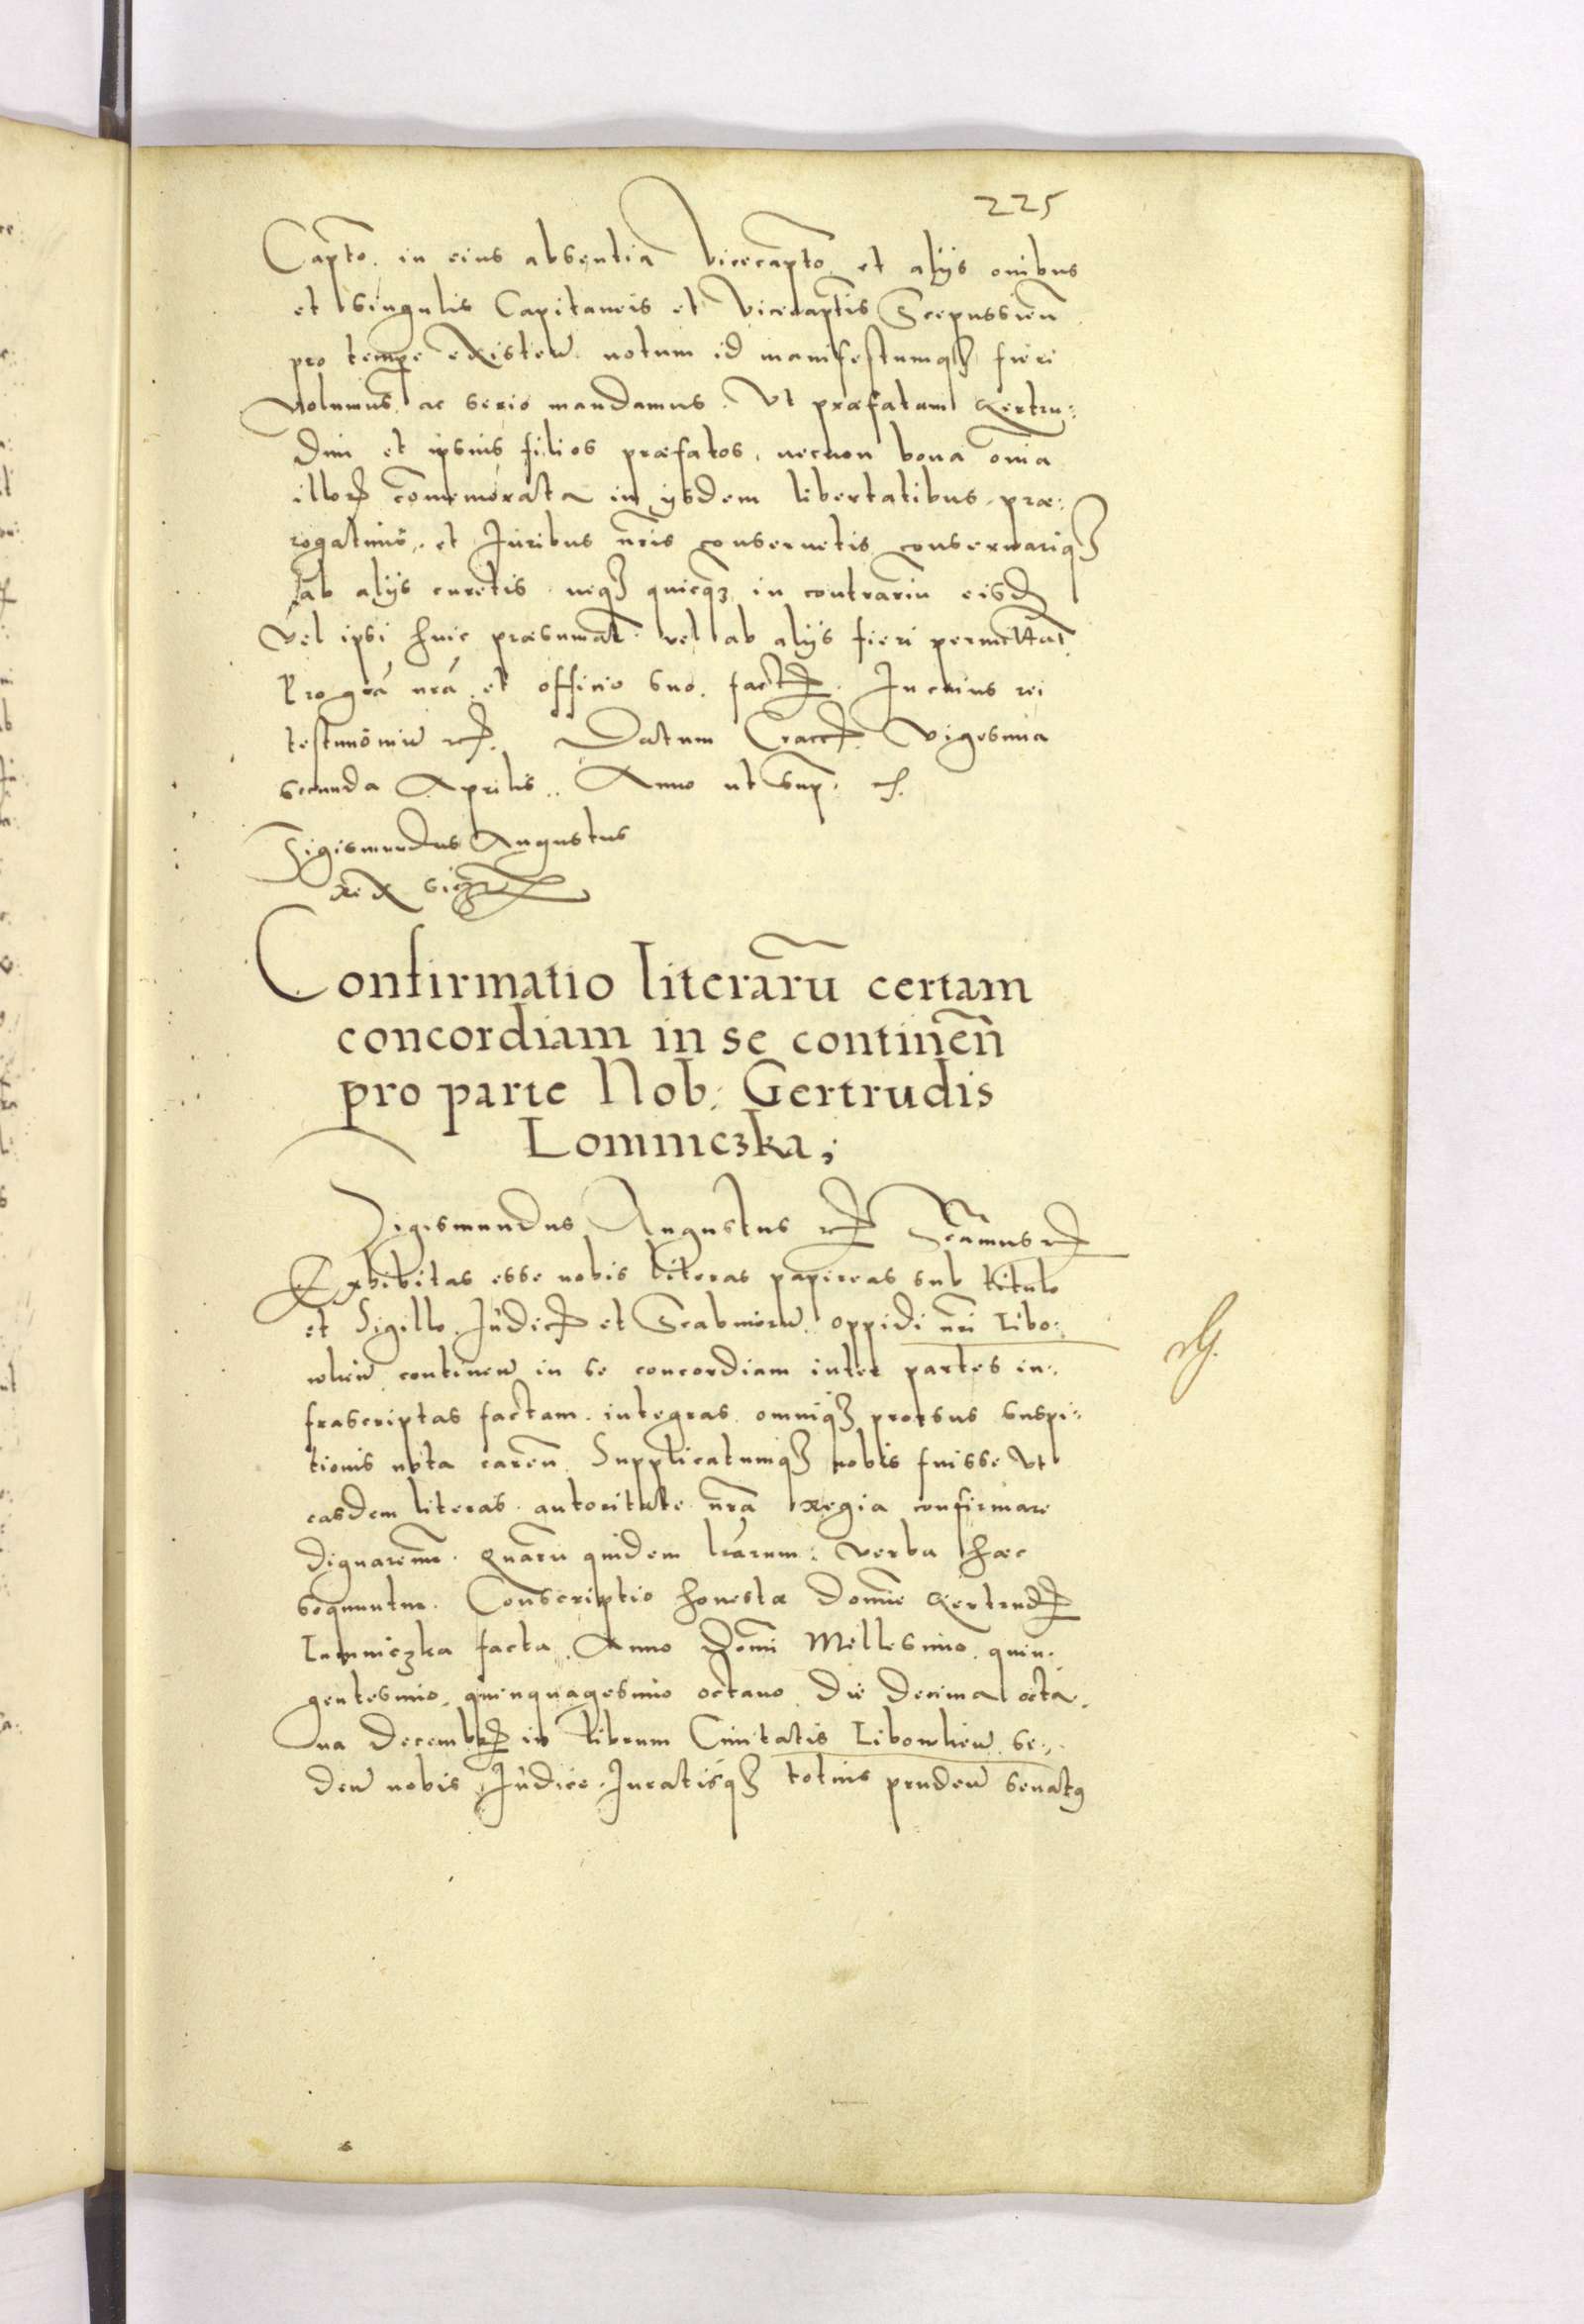 225
Capto. in eius absentia Vicecapto et alijs oīibus
et singulis Capitaneis et Vicecaptis Scepussień
pro tempe existeń. notum id manifestumqꝫ fieri
Volumus, ac serio mandamus. Ut præfatam Gertru:
dim et ipsius filios præfatos, necnon bona om̄ia
illoꝝ com̄emorata in ijsdem libertatibus, præ:
rogatiuis, et Iuribus nr̄is conseruetis conseruariqꝫ
ab alijs curetis neqꝫ quicqꝫ in contrariū eisd
vel ipsi huic præsumat. vel ab alijs fieri permittat
Pro gr̄a nr̄a et officio suo. fact. In cuius rei
testimoniū etc. Datum Crac. Vigesima
secunda Aprilis. Anno ut sup. etc.
Sigismundus Augustus
Rex
Confirmatio literarū certam
concordiam in se contineñ
pro parte Nob: Gertrudis
Lomniczka;
Sigismundus Augustus etc. Sc̄amus etc.
Exhibitas esse nobis literas papireas sub titulo
et Sigillo Iudic et Scabinorū oppidi nr̄i Libo:
wlień contineń in se concordiam inter partes in:
frascriptas factam. integras omniqꝫ prorsus suspi:
tionis nota careń. Supplicatumqꝫ nobis fuisse Ut
easdem literas autoritate nr̄a Regia confirmare
dignaremr. Quarū quidem lr̄arum: verba hæc
sequuntur. Conscriptio honestæ Domīe Gertrud
Lomniczka facta. Anno Domī Millesimo quin:
gentesimo, quinquagesimo octauo die decima octa:
ua Decemb in librum Ciuitatis Libowlień. se:
deń nobis Iudice. Iuratisqꝫ totius prudeń senatꝯ